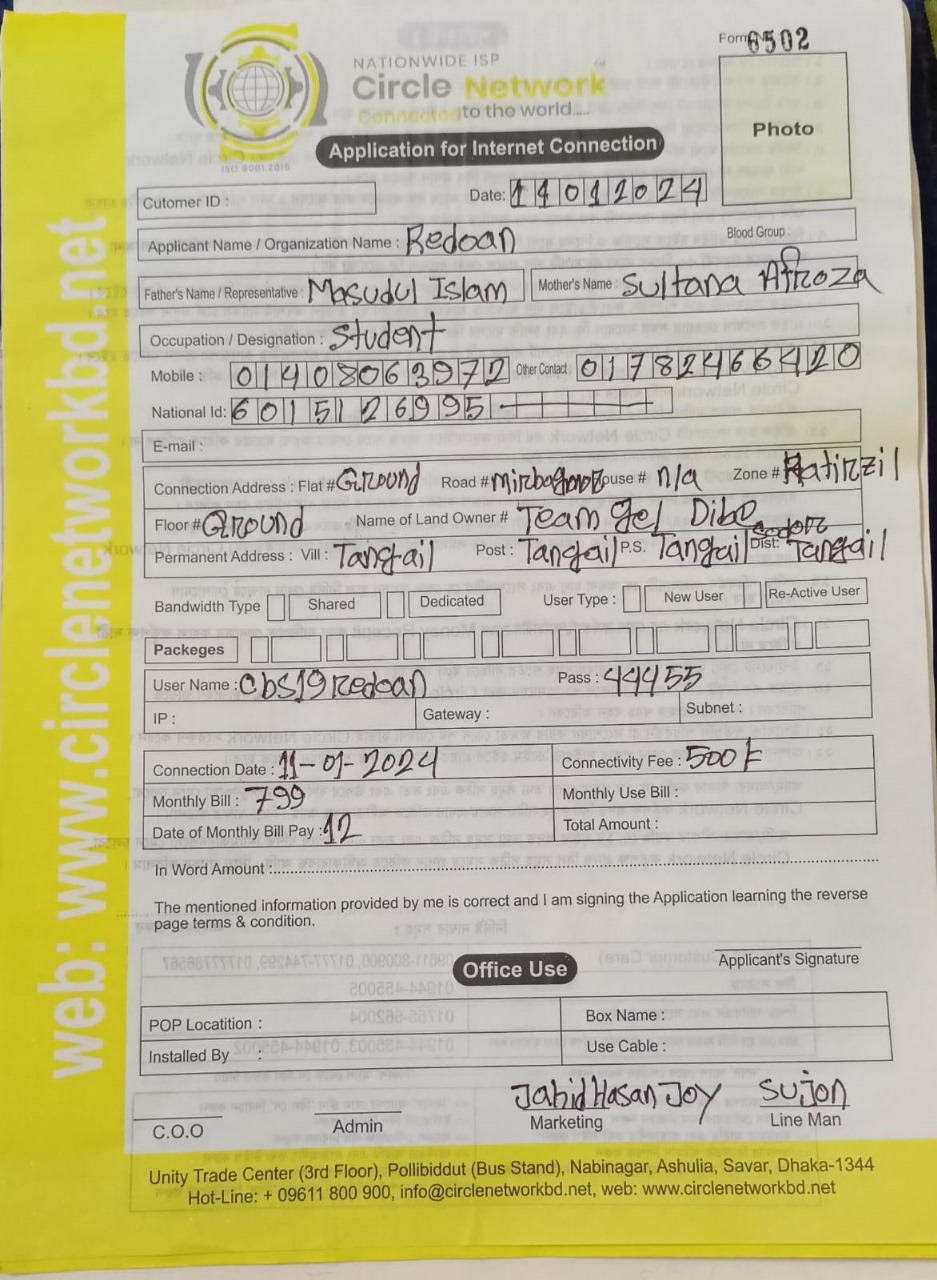 Form 6502
NATIONWIDE ISP
Circle Network
Connected to the world.....
ISO 9001:2015
Application for Internet Connection
Photo
Cutomer ID :
Date: 11012024
Applicant Name / Organization Name : Redoan
Blood Group:
Father's Name / Representative : Masudul Islam Mother's Name : Sultana Afroza
Occupation / Designation : Student
Mobile : 01408063972 Other Contact 01782466420
National Id: 6015126995
E-mail :
Connection Address : Flat # Ground Road # House # n/a Zone # Hatirzil
Floor # Ground Name of Land Owner # Team gel Dibe
Permanent Address : Vill : Tangail Post : Tangail P.S. Tangail Sador Dist: Tangail
Bandwidth Type Shared Dedicated User Type : New User Re-Active User
Packeges
User Name : cbs19redoan Pass : 44455
IP : Gateway : Subnet :
Connection Date : 11-01-2024 Connectivity Fee : 500
Monthly Bill : 799 Monthly Use Bill :
Date of Monthly Bill Pay : 12 Total Amount :
In Word Amount :
The mentioned information provided by me is correct and I am signing the Application learning the reverse
page terms & condition.
Applicant's Signature
Office Use
POP Locatition : Box Name :
Installed By : Use Cable :
Jahid Hasan Joy Sujon
C.O.O Admin Marketing Line Man
Unity Trade Center (3rd Floor), Pollibiddut (Bus Stand), Nabinagar, Ashulia, Savar, Dhaka-1344
Hot-Line: + 09611 800 900, info@circlenetworkbd.net, web: www.circlenetworkbd.net
web: www.circlenetworkbd.net